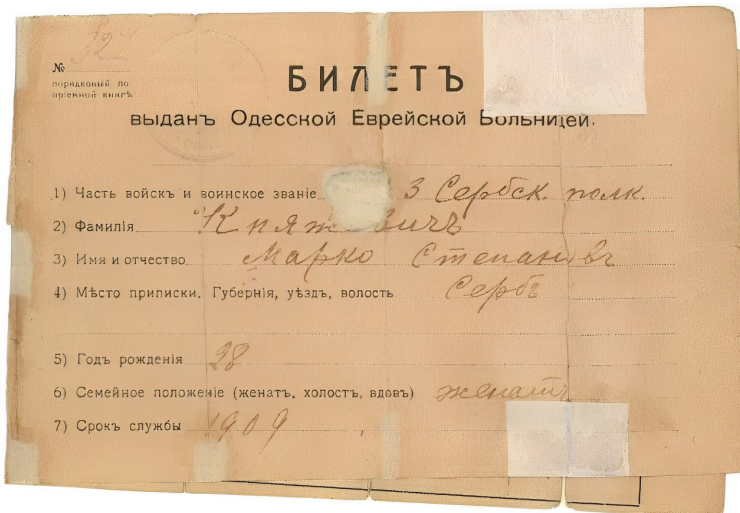 №
порядковый по
пріемной книгѣ
БИЛЕТЪ
выданъ Одесской Еврейской Больницей.
1) Часть войскъ и воинское званіе 3 Сербск. полк.
2) Фамилія
3) Имя и отчество Марко Степановъ
4) Мѣсто приписки. Губернія, уѣздъ, волость Сербъ
5) Годъ рожденія 28
6) Семейное положеніе (женатъ, холостъ, вдовъ) женатъ
7) Срокъ службы 1909